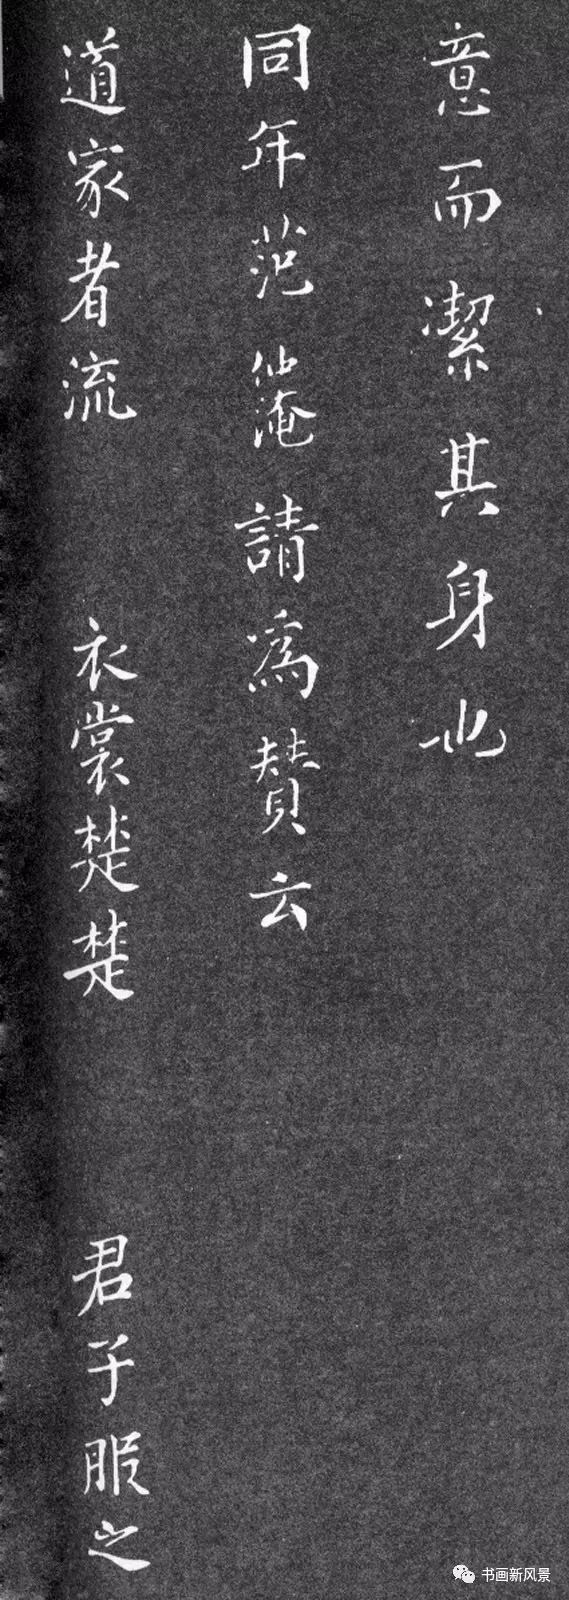 意而潔其身也
同年范仲淹請為賛云
道家者流 衣裳楚楚 君子服之
书画新风景